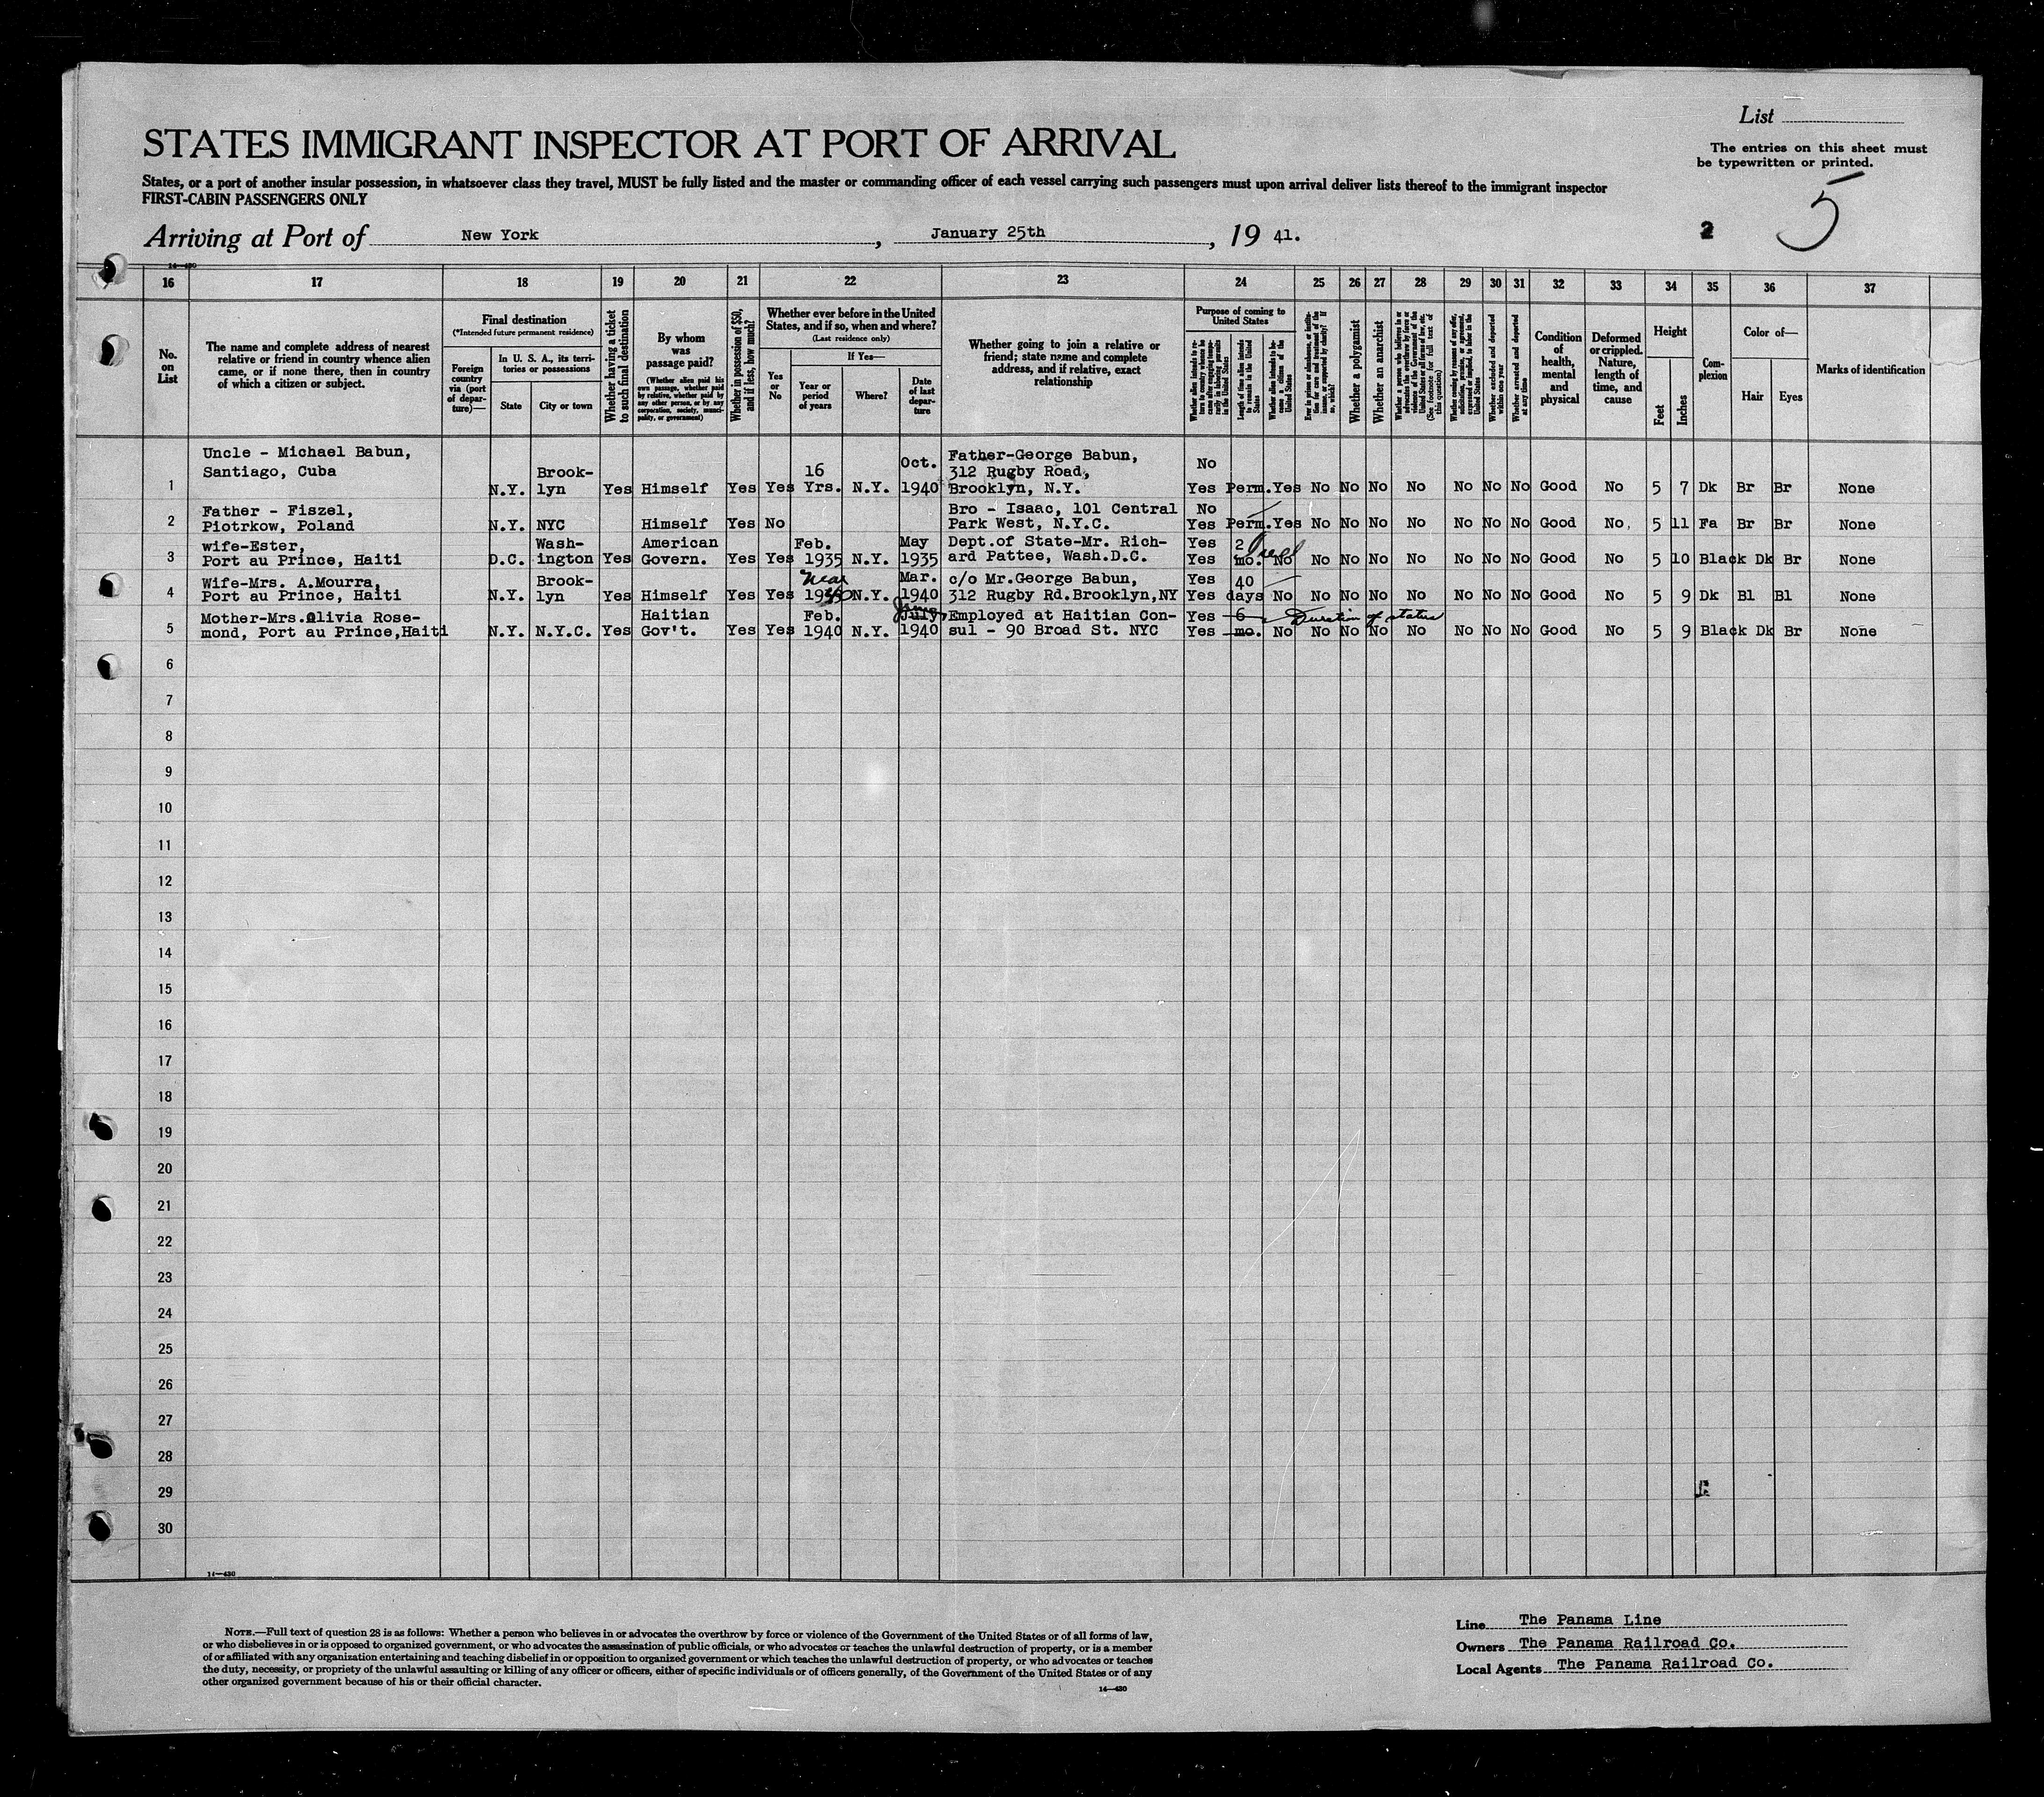 List
STATES IMMIGRANT INSPECTOR AT PORT OF ARRIVAL
The entries on this sheet must
be typewritten or printed.
States, or a port of another insular possession, in whatsoever class they travel, MUST be fully listed and the master or commanding officer of each vessel carrying such passengers must upon arrival deliver lists thereof to the immigrant inspector
FIRST-CABIN PASSENGERS ONLY
2 5
Arriving at Port of New York, January 25th, 19 41.
14—430
16 17 18 19 20 21 22 23 24 25 26 27 28 29 30 31 32 33 34 35 36 37
No. on List
The name and complete address of nearest relative or friend in country whence alien came, or if none there, then in country of which a citizen or subject.
Final destination
(*Intended future permanent residence)
Foreign country via (port of departure)—
In U. S. A., its territories or possessions
State
City or town
Whether having a ticket to such final destination
By whom was passage paid?
(Whether alien paid his own passage, whether paid by relative, whether paid by any other person, or by any corporation, society, municipality, or government)
Whether in possession of $50, and if less, how much?
Whether ever before in the United States, and if so, when and where?
(Last residence only)
Yes or No
If Yes—
Year or period of years
Where?
Date of last departure
Whether going to join a relative or friend; state name and complete address, and if relative, exact relationship
Purpose of coming to United States
Whether alien intends to return to country whence he came after engaging temporarily in laboring pursuits in the United States
Length of time alien intends to remain in the United States
Whether alien intends to become a citizen of the United States
Ever in prison or almshouse, or institution for care and treatment of the insane, or supported by charity? If so, which?
Whether a polygamist
Whether an anarchist
Whether a person who believes in or advocates the overthrow by force or violence of the Government of the United States or all forms of law, etc. (See footnote for full text of this question)
Whether coming by reasons of any offer, solicitation, promise, or agreement, expressed or implied, to labor in the United States
Whether excluded and deported within one year
Whether arrested and deported at any time
Condition of health, mental and physical
Deformed or crippled. Nature, length of time, and cause
Height
Feet
Inches
Complexion
Color of—
Hair
Eyes
Marks of identification
Uncle - Michael Babun, Oct. Father-George Babun,
Santiago, Cuba Brook- 16 312 Rugby Road, No
1 N.Y. lyn Yes Himself Yes Yes Yrs. N.Y. 1940 Brooklyn, N.Y. Yes Perm. Yes No No No No No No No Good No 5 7 Dk Br Br None
Father - Fiszel, Bro - Isaac, 101 Central No
2 Piotrkow, Poland N.Y. NYC Himself Yes No Park West, N.Y.C. Yes Perm. Yes No No No No No No No Good No. 5 11 Fa Br Br None
wife-Ester, Wash- American Feb. May Dept.of State-Mr. Rich- Yes 2
3 Port au Prince, Haiti D.C. ington Yes Govern. Yes Yes 1935 N.Y. 1935 ard Pattee, Wash.D.C. Yes mo. No No No No No No No No Good No 5 10 Black Dk Br None
Wife-Mrs. A.Mourra, Brook- Mar. c/o Mr.George Babun, Yes 40
4 Port au Prince, Haiti N.Y. lyn Yes Himself Yes Yes N.Y. 1940 312 Rugby Rd.Brooklyn,NY Yes days No No No No No No No No Good No 5 9 Dk Bl Bl None
Mother-Mrs.Olivia Rose- Haitian Feb. July, June Employed at Haitian Con- Yes 6 Duration of status
5 mond, Port au Prince,Haiti N.Y. N.Y.C. Yes Gov't. Yes Yes 1940 N.Y. 1940 sul - 90 Broad St. NYC Yes mo. No No No No No No No No Good No 5 9 Black Dk Br None
6
7
8
9
10
11
12
13
14
15
16
17
18
19
20
21
22
23
24
25
26
27
28
29
30
14—430
NOTE.—Full text of question 28 is as follows: Whether a person who believes in or advocates the overthrow by force or violence of the Government of the United States or of all forms of law,
or who disbelieves in or is opposed to organized government, or who advocates the assassination of public officials, or who advocates or teaches the unlawful destruction of property, or is a member
of or affiliated with any organization entertaining and teaching disbelief in or opposition to organized government or which teaches the unlawful destruction of property, or who advocates or teaches
the duty, necessity, or propriety of the unlawful assaulting or killing of any officer or officers, either of specific individuals or of officers generally, of the Government of the United States or of any
other organized government because of his or their official character.
14—430
Line The Panama Line
Owners The Panama Railroad Co.
Local Agents The Panama Railroad Co.